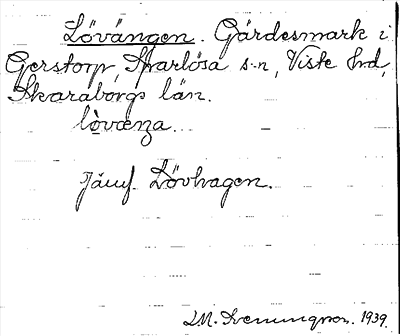 Lövängen. Gärdesmark i
Gerstorp, Sparlösa s-n, Viste hd,
Skaraborgs län.
lòvæŋa.
Jämf. Lövhagen.
L.M. Svenungsson. 1939.